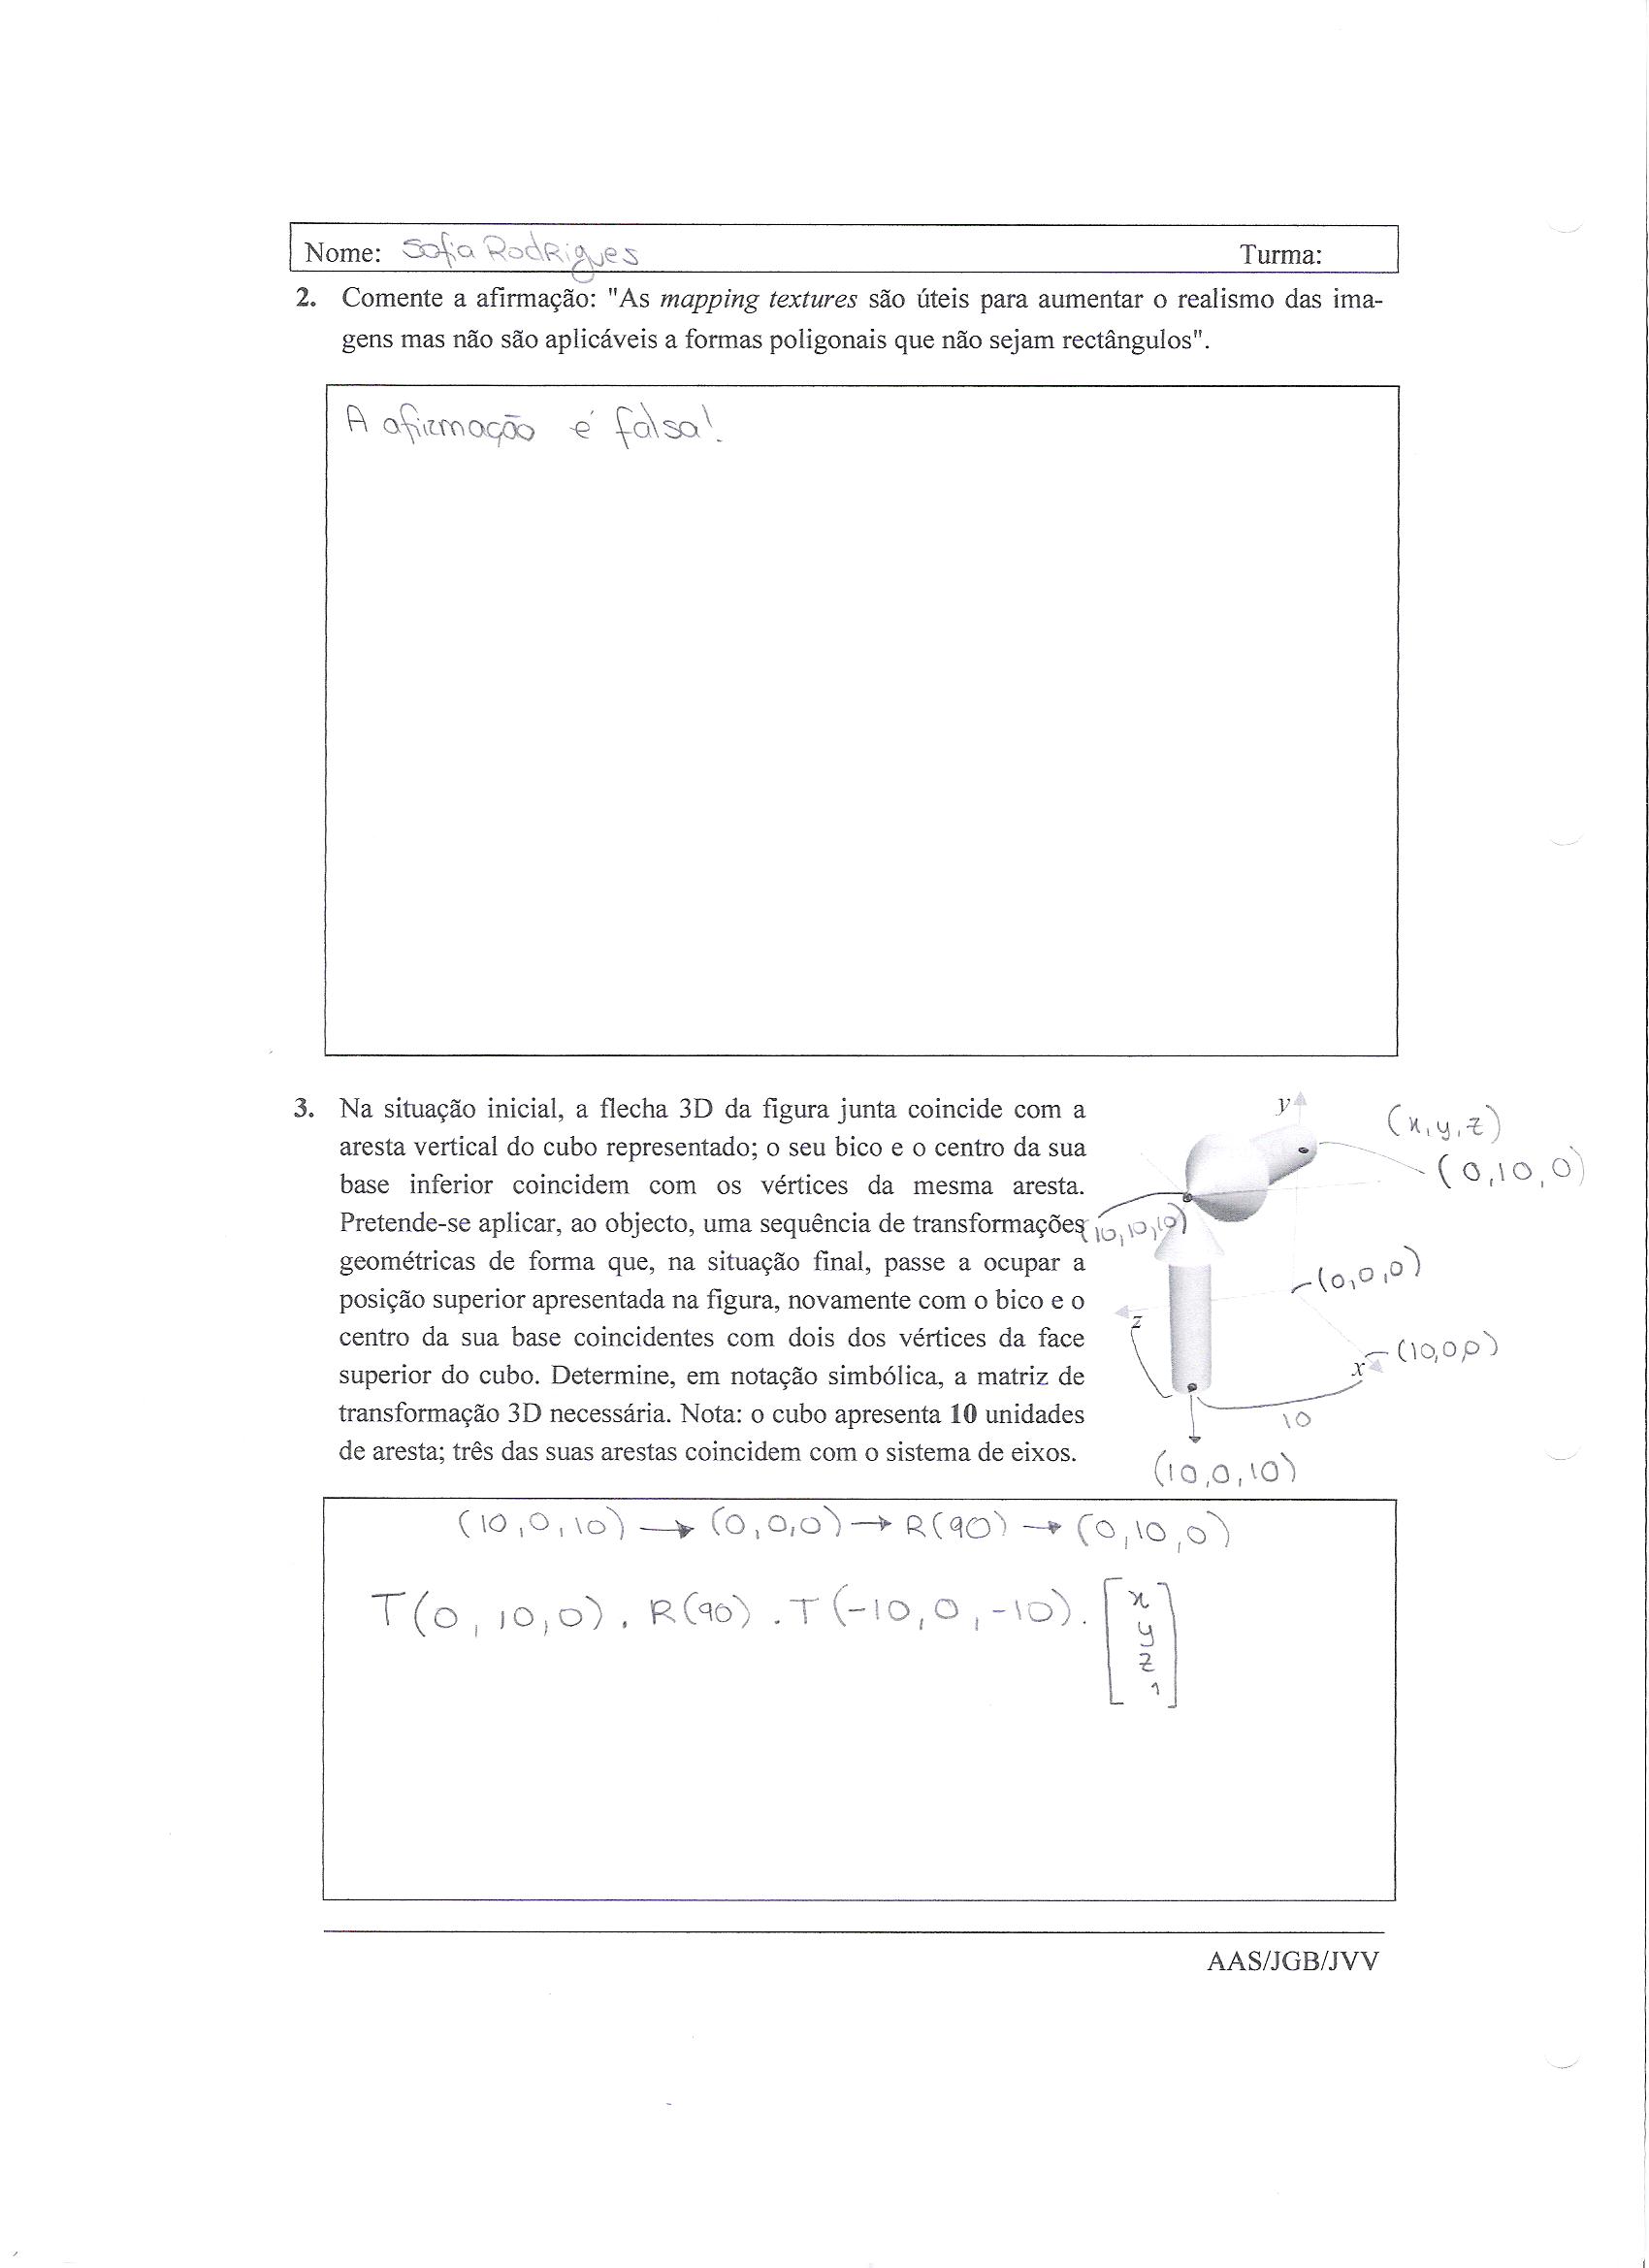 Nome: Sofia Rodrigues Turma:
2. Comente a afirmação: "As mapping textures são úteis para aumentar o realismo das ima-
gens mas não são aplicáveis a formas poligonais que não sejam rectângulos".
A afirmação é falsa!
3. Na situação inicial, a flecha 3D da figura junta coincide com a
aresta vertical do cubo representado; o seu bico e o centro da sua
base inferior coincidem com os vértices da mesma aresta.
Pretende-se aplicar, ao objecto, uma sequência de transformações
geométricas de forma que, na situação final, passe a ocupar a
posição superior apresentada na figura, novamente com o bico e o
centro da sua base coincidentes com dois dos vértices da face
superior do cubo. Determine, em notação simbólica, a matriz de
transformação 3D necessária. Nota: o cubo apresenta 10 unidades
de aresta; três das suas arestas coincidem com o sistema de eixos.
y
(x,y,z)
(0,10,0)
(10,10,10)
(0,0,0)
z
x
(10,0,0)
10
(10,0,10)
(10,0,10) → (0,0,0) → R(90) → (0,10,0)
T(0,10,0) . R(90) . T(-10,0,-10) . [x
y
z
1]
AAS/JGB/JVV